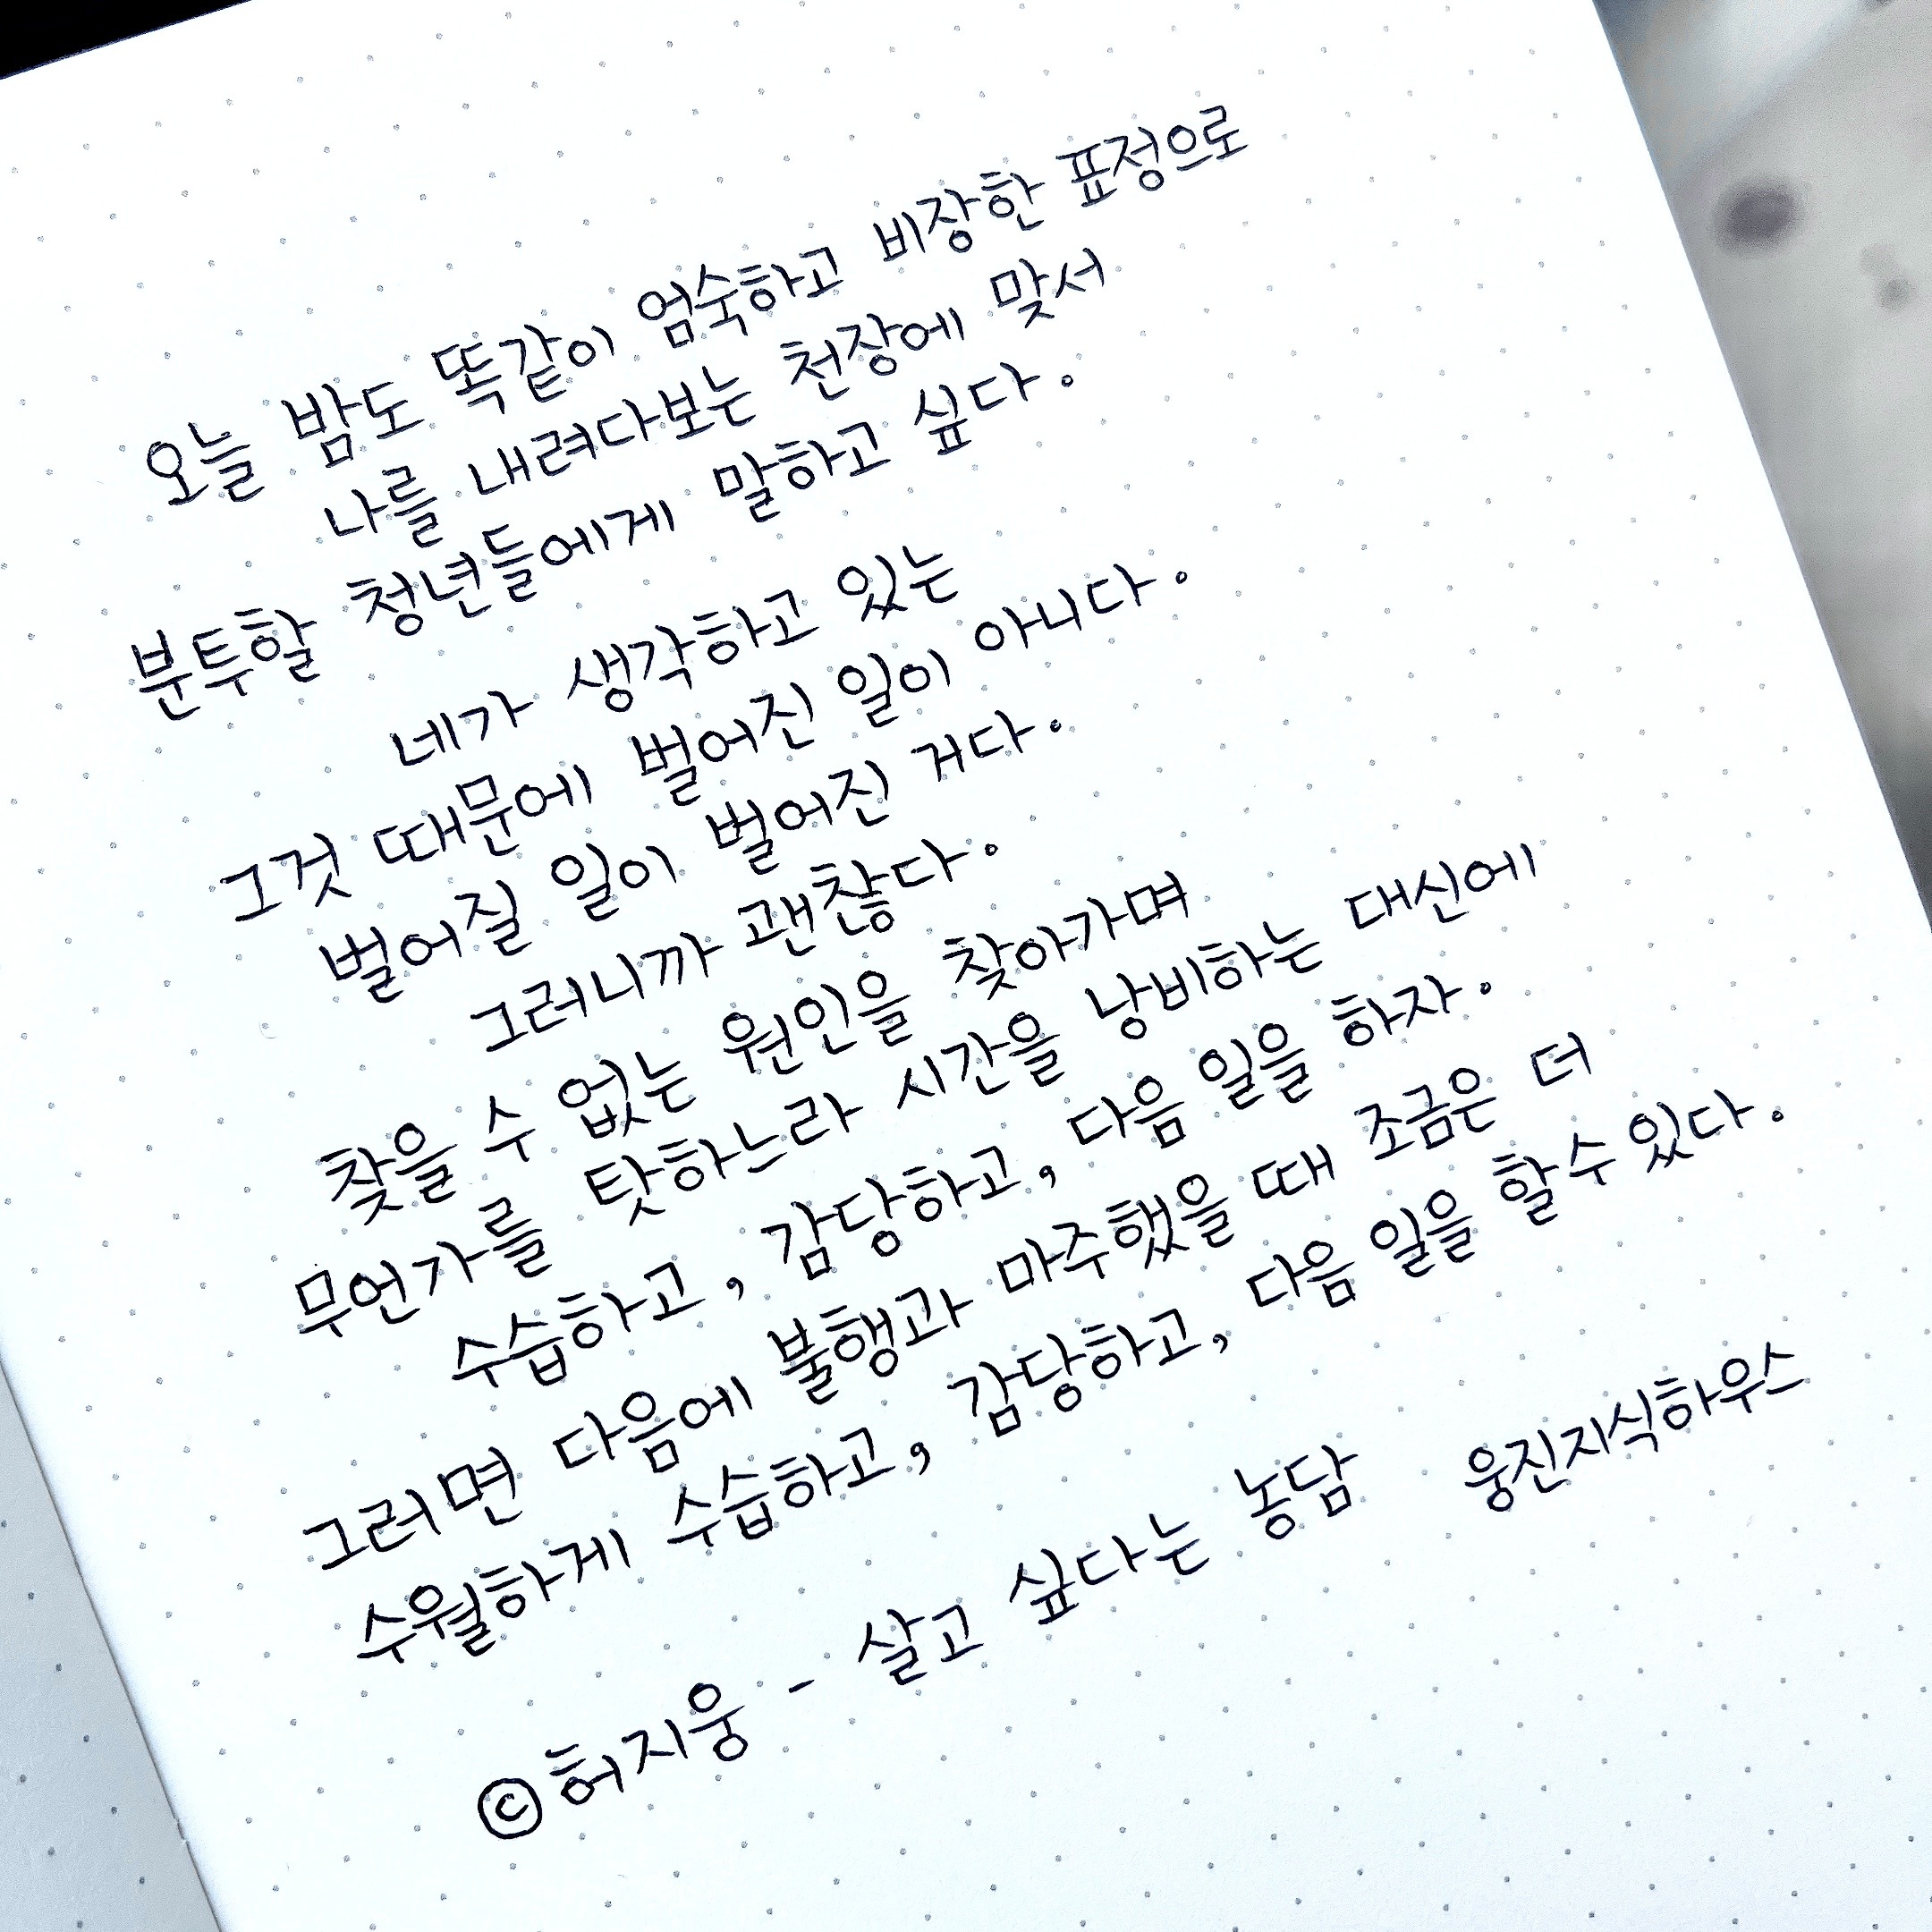 오늘 밤도 똑같이 엄숙하고 비장한 표정으로
나를 내려다보는 천장에 맞서
분투할 청년들에게 말하고 싶다.
네가 생각하고 있는
그것 때문에 벌어진 일이 아니다.
벌어질 일이 벌어진 거다.
그러니까 괜찮다.
찾을 수 없는 원인을 찾아가며
무언가를 탓하느라 시간을 낭비하는 대신에
수습하고, 감당하고, 다음 일을 하자.
그러면 다음에 불행과 마주했을 때 조금은 더
수월하게 수습하고, 감당하고, 다음 일을 할수있다.
©허지웅 - 살고 싶다는 농담 웅진지식하우스